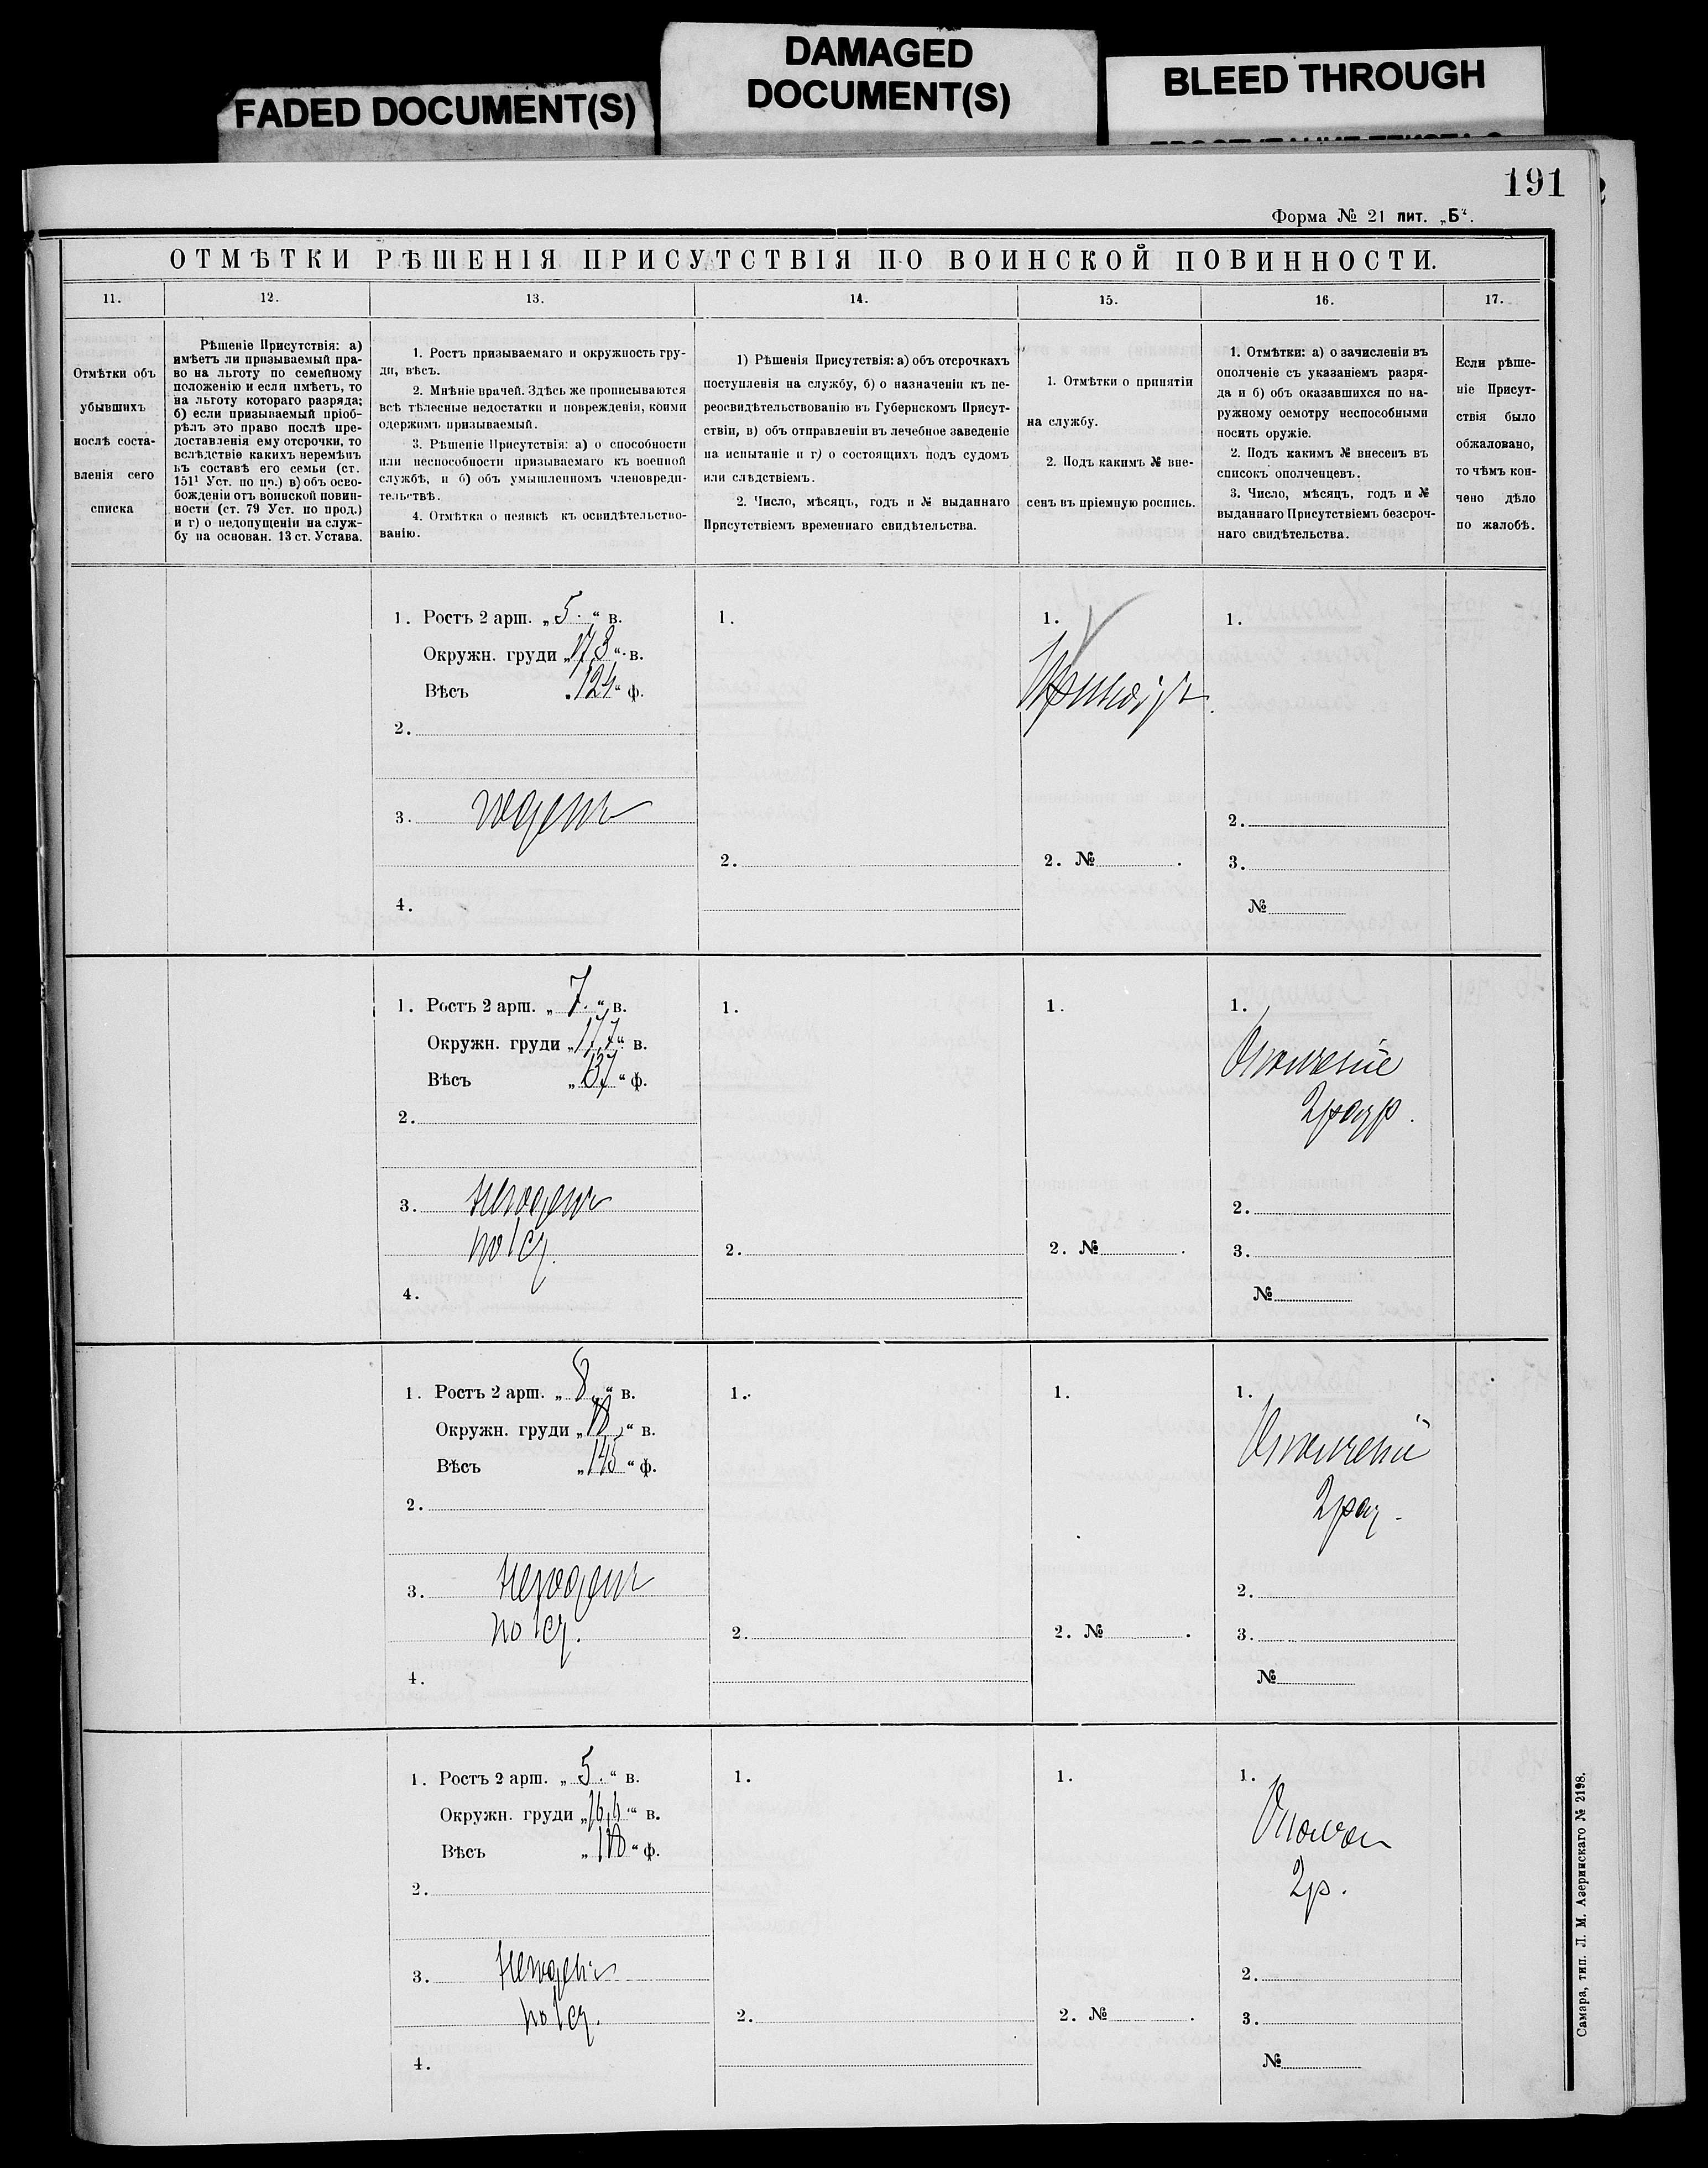 FADED DOCUMENT(S)
DAMAGED
DOCUMENT(S)
BLEED THROUGH
191
Форма № 21 лит. „Б“.
ОТМѢТКИ РѢШЕНІЯ ПРИСУТСТВІЯ ПО ВОИНСКОЙ ПОВИННОСТИ.
11.
12.
13.
14.
15.
16.
17.
Отмѣтки объ
убывшихъ
послѣ соста-
вленія сего
списка
Рѣшеніе Присутствія: а)
имѣетъ ли призываемый пра-
во на льготу по семейному
положенію и если имѣетъ, то
на льготу котораго разряда;
б) если призываемый пріоб-
рѣлъ это право послѣ пре-
доставленія ему отсрочки, то
вслѣдствіе какихъ перемѣнъ
въ составѣ его семьи (ст.
151¹ Уст. по пр.) в) объ осво-
божденіи отъ воинской повин-
ности (ст. 79 Уст. по прод.)
и г) о недопущеніи на служ-
бу на основан. 13 ст. Устава.
1. Ростъ призываемаго и окружность гру-
ди, вѣсъ.
2. Мнѣніе врачей. Здѣсь же прописываются
всѣ тѣлесные недостатки и поврежденія, коими
одержимъ призываемый.
3. Рѣшеніе Присутствія: а) о способности
или неспособности призываемаго къ военной
службѣ, и б) объ умышленномъ членовреди-
тельствѣ.
4. Отмѣтка о неявкѣ къ освидѣтельство-
ванію.
1) Рѣшенія Присутствія: а) объ отсрочкахъ
поступленія на службу, б) о назначеніи къ пе-
реосвидѣтельствованію въ Губернскомъ Присут-
ствіи, в) объ отправленіи въ лечебное заведеніе
на испытаніе и г) о состоящихъ подъ судомъ
или слѣдствіемъ.
2. Число, мѣсяцъ, годъ и № выданнаго
Присутствіемъ временнаго свидѣтельства.
1. Отмѣтки о принятіи
на службу.
2. Подъ какимъ № вне-
сенъ въ пріемную роспись.
1. Отмѣтки: а) о зачисленіи въ
ополченіе съ указаніемъ разря-
да и б) объ оказавшихся по на-
ружному осмотру неспособными
носить оружіе.
2. Подъ какимъ № внесенъ въ
списокъ ополченцевъ.
3. Число, мѣсяцъ, годъ и №
выданнаго Присутствіемъ безсроч-
наго свидѣтельства.
Если рѣше-
ніе Присут-
ствія было
обжаловано,
то чѣмъ кон-
чено дѣло
по жалобѣ.
1. Ростъ 2 арш. „5.“ в.
Окружн. груди „17,3“ в.
Вѣсъ „124“ ф.
2.
3. годенъ
4.
1.
2.
1.
Принятъ
2. №
1.
2.
3.
№
1. Ростъ 2 арш. „7.“ в.
Окружн. груди „17,7“ в.
Вѣсъ „137“ ф.
2.
3. Негоденъ
по 1 ст.
4.
1.
2.
1.
2. №
1.
Ополченіе
2 разр.
2.
3.
№
1. Ростъ 2 арш. „8“ в.
Окружн. груди „18“ в.
Вѣсъ „145“ ф.
2.
3. Негоденъ
по 1 ст.
4.
1.
2.
1.
2. №
1.
Ополченіе
2 раз.
2.
3.
№
1. Ростъ 2 арш. „5.“ в.
Окружн. груди „16,6“ в.
Вѣсъ „118“ ф.
2.
3. Негоденъ
по 1 ст.
4.
1.
2.
1.
2. №
1.
Ополчен
2 р.
2.
3.
№
Самара, тип. Л. М. Азеринскаго № 2198.